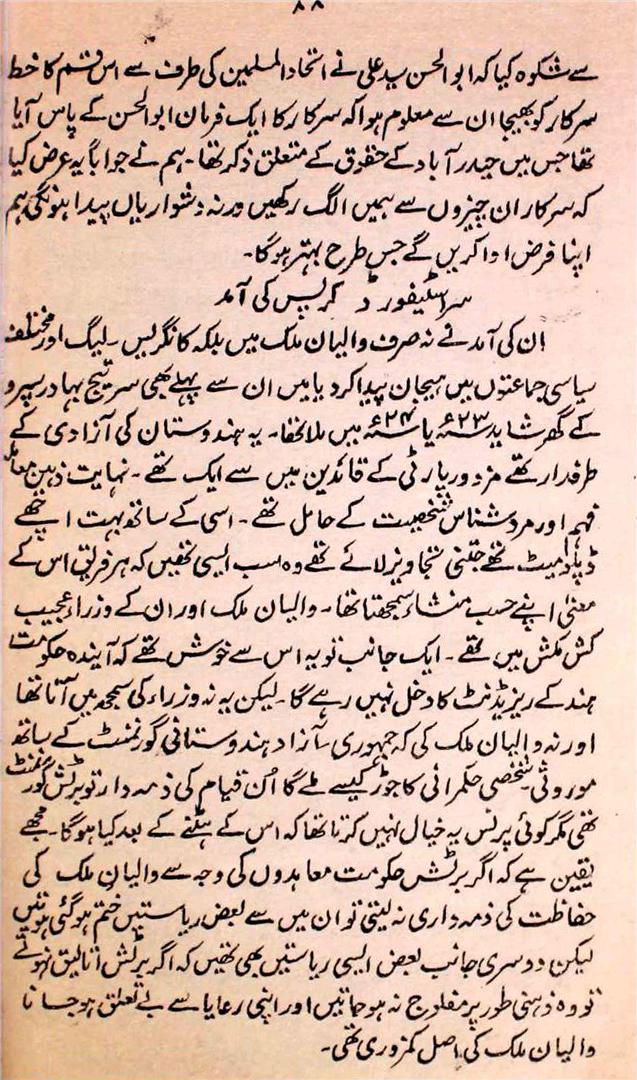 ۸۸
سے شکوہ کیا کہ ابوالحسن سید علی نے اتحاد المسلمین کی طرف سے اس قسم کا خط
سرکار کو بھیجا ان سے معلوم ہوا کہ سرکار کا ایک فرمان ابوالحسن کے پاس آیا
تھا جس میں حیدر آباد کے حقوق کے متعلق ذکر تھا۔ ہم نے جواباً یہ عرض کیا
کہ سرکار ان چیزوں سے ہمیں الگ رکھیں ورنہ دشواریاں پیدا ہونگی ہم
اپنا فرض ادا کریں گے جس طرح بہتر ہوگا۔
سر اسٹیفورڈ کرپس کی آمد
ان کی آمد نے نہ صرف والیان ملک میں بلکہ کانگریس۔ لیگ اور مختلف
سیاسی جماعتوں میں ہیجان پیدا کر دیا میں ان سے پہلے بھی سر تیج بہادر سپرو
کے گھر شاید ۲۳ء یا ۲۴ء میں ملا تھا۔ یہ ہندوستان کی آزادی کے
طرفدار تھے مزدور پارٹی کے قائدین میں سے ایک تھے۔ نہایت ذہین معاملہ
فہم اور مردم شناس شخصیت کے حامل تھے۔ اسی کے ساتھ بہت اچھے
ڈپلومیٹ تھے جتنی تجاویز لائے تھے وہ سب ایسی تھیں کہ ہر فریق اس کے
معنی اپنے حسب منشاء سمجھتا تھا۔ والیان ملک اور ان کے وزراء عجیب
کش مکش میں تھے۔ ایک جانب تو یہ اس سے خوش تھے کہ آیندہ حکومت
ہند کے ریزیڈنٹ کا دخل نہیں رہے گا۔ لیکن یہ نہ وزراء کی سمجھ میں آتا تھا
اور نہ والیان ملک کی کہ جمہوری آزاد ہندوستانی گورنمنٹ کے ساتھ
موروثی شخصی حکمرانی کا جوڑ کیسے ملے گا اُن قیام کی ذمہ دار تو برٹش گورنمنٹ
تھی مگر کوئی پرنس یہ خیال نہیں کرتا تھا کہ اس کے ہٹنے کے بعد کیا ہوگا۔ مجھے
یقین ہے کہ اگر برٹش حکومت معاہدوں کی وجہ سے والیان ملک کی
حفاظت کی ذمہ داری نہ لیتی تو ان میں سے بعض ریاستیں ختم ہو گئی ہوتیں
لیکن دوسری جانب بعض ایسی ریاستیں بھی تھیں کہ اگر برٹش اتالیق نہوتے
تو وہ ذہنی طور پر مفلوج نہ ہو جاتیں اور اپنی رعایا سے بے تعلق ہو جانا
والیان ملک کی اصل کمزوری تھی۔